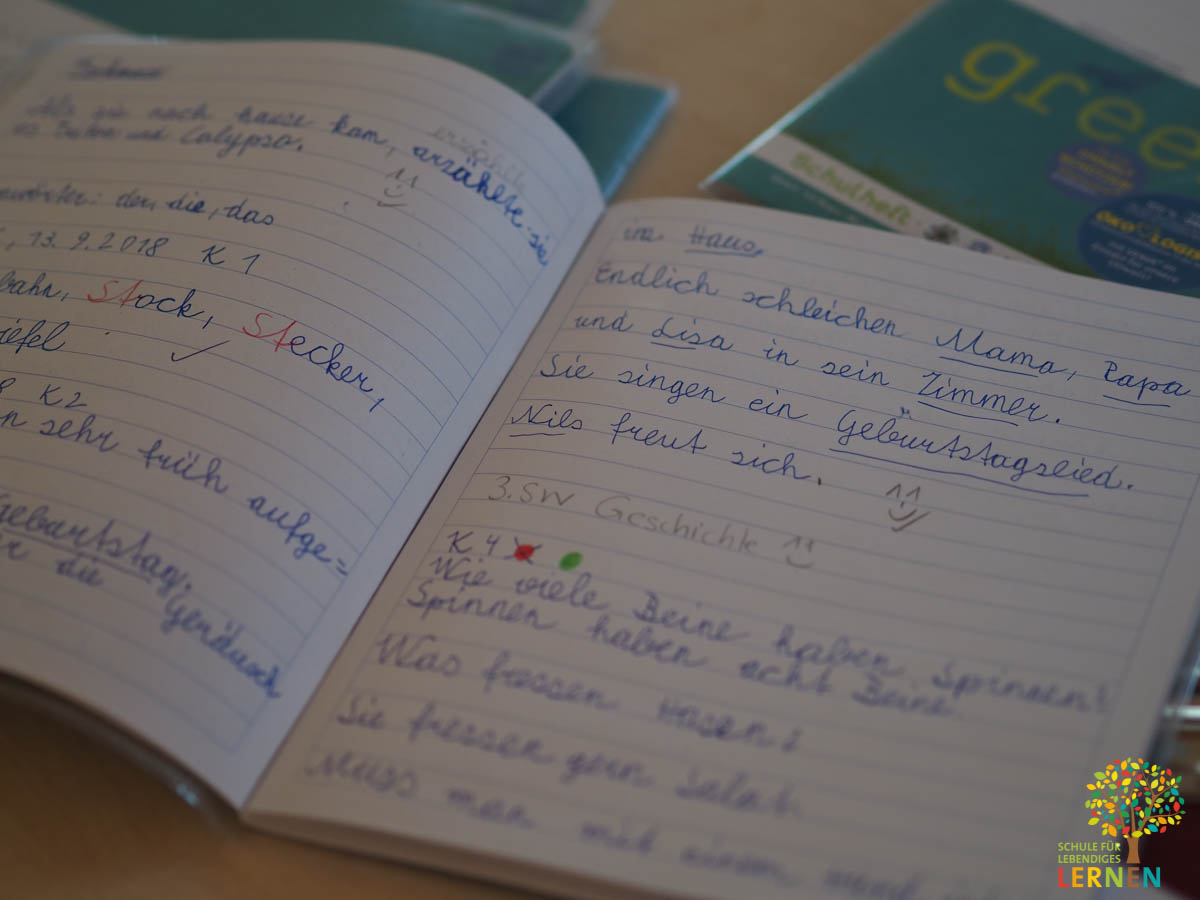 Als sie nach hause kam, arzählte sie
und Calypso.
erzähl
der, die, das
13.9.2018 K 1
bahn, Stock, Stecker,
iefel
K 2
n sehr früh aufge=
Geburtstag.
die Geräusch
im Haus.
Endlich schleichen Mama, Papa
und Lisa in sein Zimmer.
Sie singen ein Geburtstagslied.
Nils freut sich.
3. SW Geschichte
K 4
Wie viele Beine haben Spinnen?
Spinnen haben acht Beine
Was fressen Hasen?
Sie fressen gern Salat.
Muss man mit einem
gree
Schulheft
ÖKOLOGIS
SCHULE FÜR
LEBENDIGES
LERNEN